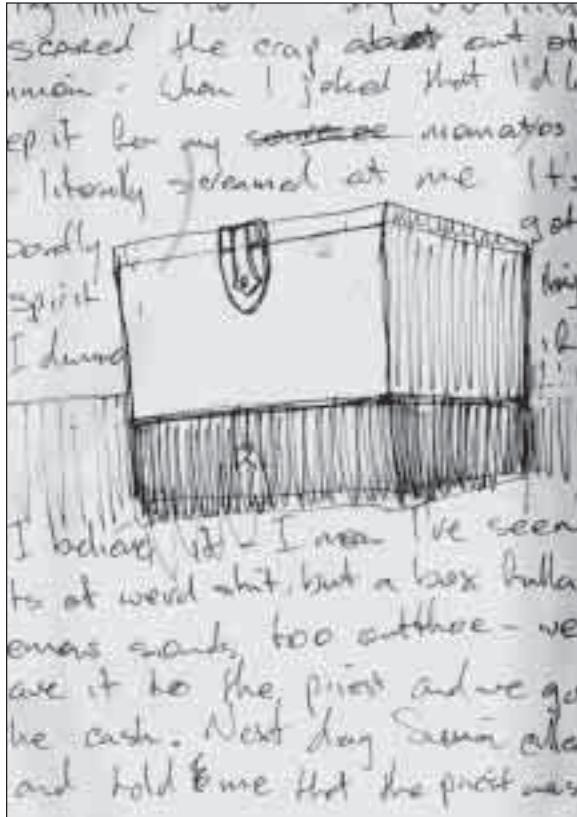 scared the crap out of
when I joked that I'd
ep it for my mamatios
literally screamed at me It's
got
spirit
I dunno
I believe it - I mean I've seen
ts of weird shit, but a box fulla
emons sounds too outthere - we
ave it to the priest and we go
he cash. Next day Simon calle
and told me that the priest was